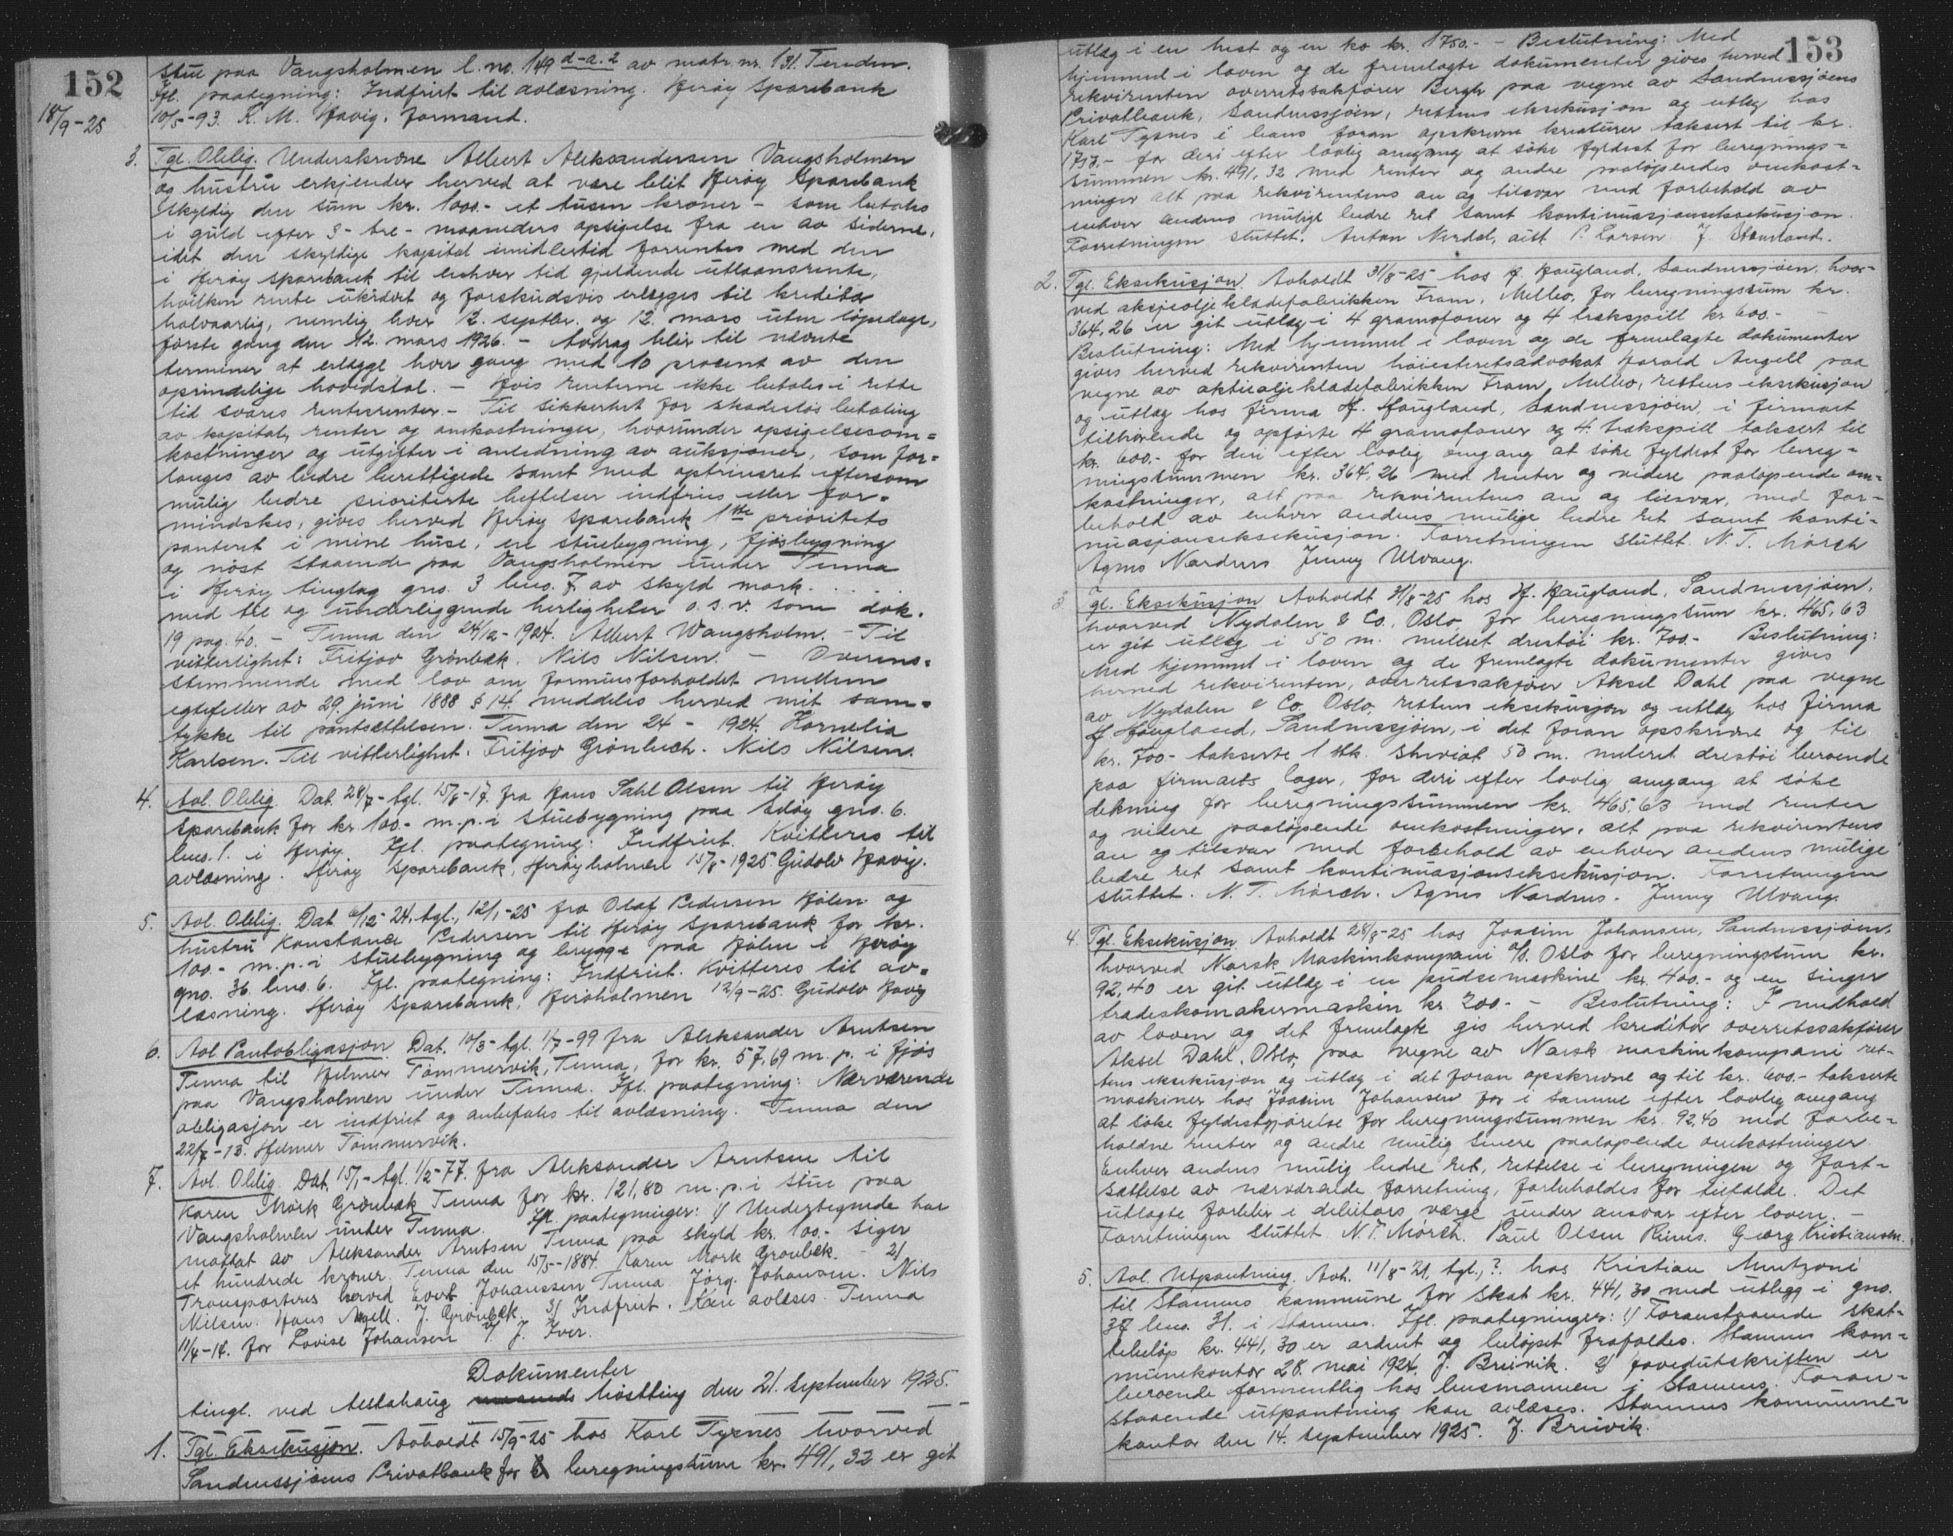 152
18/9-25
stue paa Vangsholmen l.no. 149 d-a.2 av matr. nr. 131. Tenden.
Ifl. paategning: Indfriet til avlæsning. Herøy Sparebank
10/5-93. K. M. Havig. formand.
3. Tgl. Oblig. Underskrevne Albert Aleksandersen Vangsholmen
og hustru erkjender herved at være blit Herøy Sparebank
skyldig den sum kr. 1000.- et tusen kroner - som betales
i guld efter 3 - tre - maaneders opsigelse fra en av siderne,
idet den skyldige kapital imidlertid forrentes med den
i Herøy sparebank til enhver tid gjeldende utlaansrente,
hvilken rente ukrævet og forskudsvis erlægges til kreditor
halvaarlig, nemlig hver 12. septbr. og 12. mars uten løpedage,
første gang den 12. mars 1926. - Avdrag blir til nævnte
terminer at erlægge hver gang med 10 procent av den
oprindelige hovedstol. - Hvis renterne ikke betales i rette
tid svares renterenter. - Til sikkerhet for skadesløs betaling
av kapital, renter og omkostninger, hvorunder opsigelsesom=
kostninger og utgifter i anledning av auksjoner, som for=
langes av bedre berettigede samt med optrinsret eftersom
mulig bedre prioriterte heftelser indfries eller for=
mindskes, gives herved Herøy Sparebank 1ste prioritets
panteret i mine huse, en stuebygning, fjøsbygning
og nøst staaende paa Vangsholmen under Tenna
i Herøy tinglag gno. 3 bno. 7 av skyld mark . . . .
med til og underliggende herligheter o.s.v. som dok.
19 pag. 40. - Tenna den 24/12-1924. Albert Wangsholm. - Til
vitterlighet: Fritjov Grønbæk. Nils Nilsen. - Overens=
stemmende med lov om formuesforholdet mellem
egtefeller av 29. juni 1888 § 14. meddeles herved mit sam=
tykke til pantsættelsen. Tenna den 24 - 1924. Hornelia
Karlsen. Til vitterlighet. Fritjov Grønbech. Nils Nilsen.
4. Avl. Oblig. Dat. 28/7 - tgl. 15/8-17. fra Hans Dahl Olsen til Herøy
Sparebank for kr. 100.- m.p. i stuebygning paa Seløy gno. 6.
bno. 1. i Herøy. Ifl. paategning: Indfriet. Kvitteres til
avlæsning. Herøy Sparebank, Herøyholmen 15/8-1925. Gudolv Havig.
5. Avl. Oblig. Dat. 6/12-24, tgl. 12/1-25 fra Olaf Pedersen Hølen og
hustru Konstance Pedersen til Herøy Sparebank for kr.
100.- m.p. i stuebygning og brygge paa Hølen i Herøy
gno. 36. bno. 6. Ifl. paategning: Indfriet. Kvitteres til av=
læsning. Herøy Sparebank, Herøholmen 12/9-25. Gudolv Havig
6. Avl. Pantobligasjon. Dat. 10/5- tgl. 1/7-99 fra Aleksander Arntsen
Tenna til Helmer Tømmervik, Tenna, for kr. 57,69 m. p. i fjøs
paa Vangsholmen under Tenna. Ifl. paategning: Nærværende
obligasjon er indfriet og anbefales til avlæsning. Tenna den
22/7-13. Helmer Tømmervik.
7. Avl. Oblig. Dat. 15/1- tgl. 1/2-77. fra Aleksander Arntsen til
Karen Mørk Grønbæk Tenna for kr. 121,80 m.p. i stue paa
Vangsholmen under Tenna. Ifl. paategninger: 1/ Undertegnede har
mottat av Aleksander Arntsen Tenna paa skyld kr. 100.- siger
et hundrede kroner. Tenna den 15/5-1884. Karen Mørk Grønbæk. - 2/
Transporteres herved Evert Johanssen Tenna. Jørg. Johansen. Nils
Nilsen. Hans J. Grønbæk. 3/ Indfriet. Kan avlæses. Tenna
11/4-14. for Lovise Johansen J. Iver.
Dokumenter
tingl. ved Alstahaug høstting den 21. september 1925.
1. Tgl. Eksekusjon. Avholdt 15/9-25 hos Karl Tysnes hvorved
Sandnessjøens Privatbank for beregningstum kr. 491,32 er git
153
utlæg i en hest og en ko kr. 1750.- - Beslutning: Med
hjemmel i loven og de fremlagte dokumenter gives herved
rekvirenten overretssakfører Bergh paa vegne av Sandnessjøens
Privatbank, Sandnessjøen, rettens eksekusjon og utlæg hos
Karl Tysnes i hans foran opskrevne kreaturer taksert til kr.
for deri efter lovlig omgang at søke fyldest for beregnings=
summen kr. 491,32 med renter og andre paaløpendes omkost=
ninger alt paa rekvirentens an og tilsvar med forbehold av
enhver andens mulige bedre ret samt kontinuasjonseksekusjon.
Forretningen sluttet. Anton Nerdal, P. Larsen. J.
2. Tgl. Eksekusjon. Avholdt 31/8-25 hos H. Haugland, Sandnessjøen, hvor=
ved aksjeoljeklædefabrikken Fram, Melbo, for beregningssum kr.
364,26 er git utlæg i 4 gramofoner og 4 trækspill kr. 600.-
Beslutning: Med hjemmel i loven og de fremlagte dokumenter
gives herved rekvirenten høiesteretsadvokat Harald Angell paa
vegne av aktieoljeklædefabrikken Fram, Melbo, rettens eksekusjon
og utlæg hos firma H. Haugland, Sandnessjøen, i firmaet
tilhørende og opførte 4 gramofoner og 4 trækspill taksert til
kr. 600.- for deri efter lovlig omgang at søke fyldest for bereg=
ningssummen kr. 364,26 med renter og videre paaløpende om=
kostninger, alt paa rekvirentens an og tilsvar, med for=
behold av enhver andens mulige bedre ret samt konti=
nuasjonseksekusjon. Forretningen sluttet. N. T. Mørch
Agnes Nordnes. Jenny Ulvang.
3. Tgl. Eksekusjon Avholdt 31/8-25 hos H. Haugland, Sandnessjøen,
hvorved Nydalen & Co., Oslo for beregningstum kr. 465,63
er git utlæg i 50 m. meleret drestøi kr. 700.- Beslutning:
Med hjemmel i loven og de fremlagte dokumenter gives
herved rekvirenten, overretssakfører Aksel Dahl paa vegne
av Nydalen & Co. Oslo, rettens eksekusjon og utlæg hos firma
H. Haugland, Sandnessjøen, i det foran opskrevne og til
kr. 700- takserte 1 stk. sheviot 50 m. meleret drestøi beroende
paa firmaets lager, for deri efter lovlig omgang at søke
dekning for beregningssummen kr. 465,63 med renter
og videre paaløpende omkostninger, alt paa rekvirentens
an og tilsvar med forbehold av enhver andens mulige
bedre ret samt kontinuasjonseksekusjon. Forretningen
sluttet. N. T. Mørch. Agnes Nordnes. Jenny Ulvang.
4. Tgl. Eksekusjon. Avholdt 28/8-25 hos Joakim Johansen, Sandnessjøen,
hvorved Norsk Maskinkompani A/S. Oslo for beregningstum kr.
92,40 er git utlæg i en pudsemaskine kr. 400.- og en singer
tradeskomakermaskin kr. 200.- - Beslutning: I medhold
av loven og det fremlagte gis herved kreditor overretssakfører
Aksel Dahl, Oslo, paa vegne av Norsk maskinkompani ret=
tens eksekusjon og utlæg i det foran opskrevne og til kr. 600.- takserte
maskiner hos Joakim Johansen for i samme efter lovlig omgang
at søke fyldestgjørelse for beregningssummen kr. 92,40 med forbe=
holdne renter og andre mulig senere paaløpende omkostninger.
Enhver andens mulig bedre ret, rettelse i beregningen og fort=
sættelse av nærværende forretning, forbeholdes for tilfælde. Det
utlagte forblir i debitors værge under ansvar efter loven. -
Forretningen sluttet. N. T. Mørch. Paul Olsen Rines. Georg Kristiansen.
5. Avl. Utpantning. Avh. 11/8-21, tgl. ? hos Kristian Mentzoni
til Stamnes kommune for skat kr. 441,30 med utlegg i gno.
37 bno. 31. i Stamnes. Ifl. paategninger: 1/ Foranstaaende skat=
tebeløp kr. 441,30 er ordnet og beløpet frafaldes. Stamnes kom=
munekontor 28. mai 1924. J. Breivik. 2/ hovedutskriften er
beroende formentlig hos lensmannen i Stamnes. Foran=
staaende utpantning kan avlæses. Stamnes kommune=
kontor den 14. september 1925. J. Breivik.